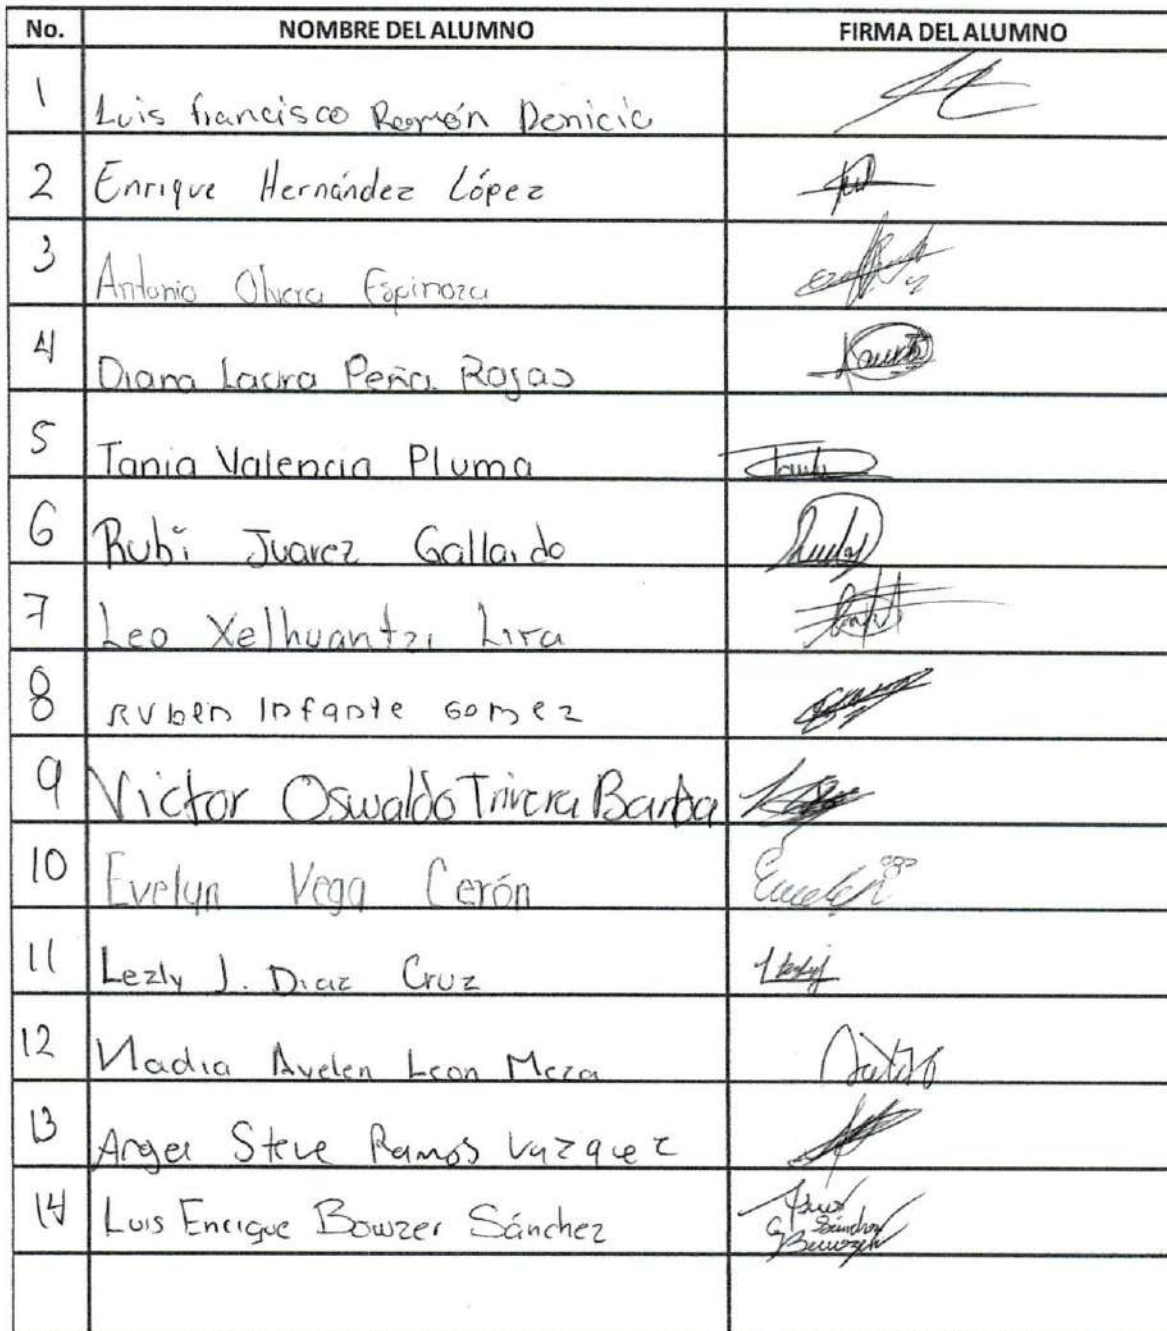 No. NOMBRE DEL ALUMNO FIRMA DEL ALUMNO
1 Luis francisco Román Denicia
2 Enrique Hernández López
3 Antonio Olvera Espinoza
4 Diana Laura Peña Rojas
5 Tania Valencia Pluma
6 Rubi Juarez Gallardo
7 Leo Xelhuantzi Lira
8 Ruben Infante Gomez
9 Victor Oswaldo Trivera Barba
10 Evelyn Vega Cerón
11 Lezly J. Diaz Cruz
12 Nadia Ayelen Leon Meza
13 Angel Steve Ramos Vazquez
14 Luis Enrique Bowzer Sánchez